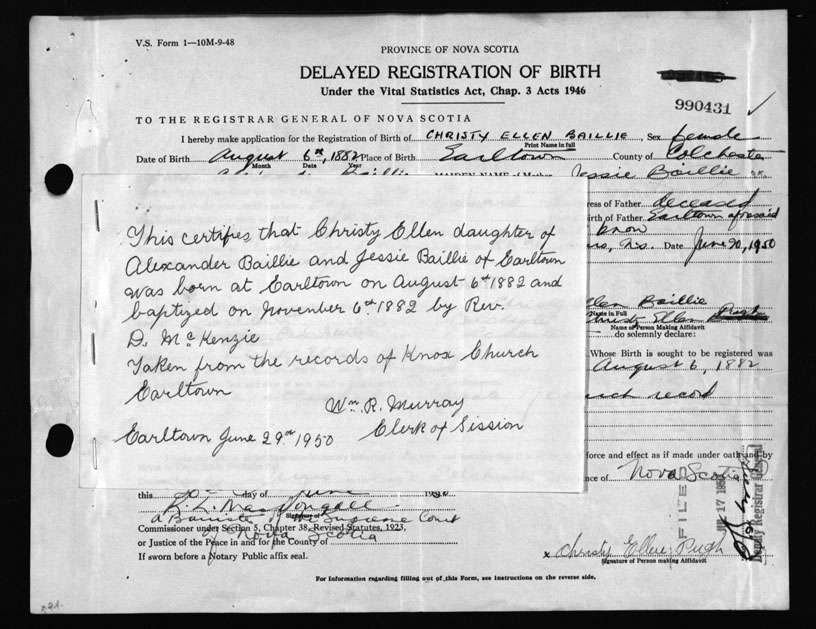 V.S. Form 1—10M-9-48
PROVINCE OF NOVA SCOTIA
DELAYED REGISTRATION OF BIRTH
Under the Vital Statistics Act, Chap. 3 Acts 1946
990431
TO THE REGISTRAR GENERAL OF NOVA SCOTIA
I hereby make application for the Registration of Birth of CHRISTY ELLEN BAILLIE, Sex female
Print Name in full
Date of Birth August 6th, 1882 Place of Birth Earltown County of Colchester
Month Date Year
MAIDEN NAME of Mother Jessie Baillie
ress of Father deceased
irth of Father Earltown aforesaid
know
N.S. Date June 20, 1950
This certifies that Christy Ellen daughter of
Alexander Baillie and Jessie Baillie of Earltown
was born at Earltown on August 6th 1882 and
baptized on November 6th 1882 by Rev.
D. McKenzie
Taken from the records of Knox Church
Earltown
Wm. R. Murray
Earltown June 29th 1950 Clerk of Session
llen Baillie
Name in Full
Christy Ellen
Name of Person Making Affidavit
do solemnly declare:
Whose Birth is sought to be registered was
August 6, 1882
urch record
force and effect as if made under oath and by
nce of Nova Scotia
this day of June 1950
a Barrister of the Supreme Court
Signature of
Commissioner under Section 5, Chapter 38, Revised Statutes, 1923,
of Nova Scotia
or Justice of the Peace in and for the County of
If sworn before a Notary Public affix seal.
FILED
17 1950
Deputy Registrar General
x Christy Ellen Pugh
Signature of Person making Affidavit
For Information regarding filling out of this Form, see instructions on the reverse side.